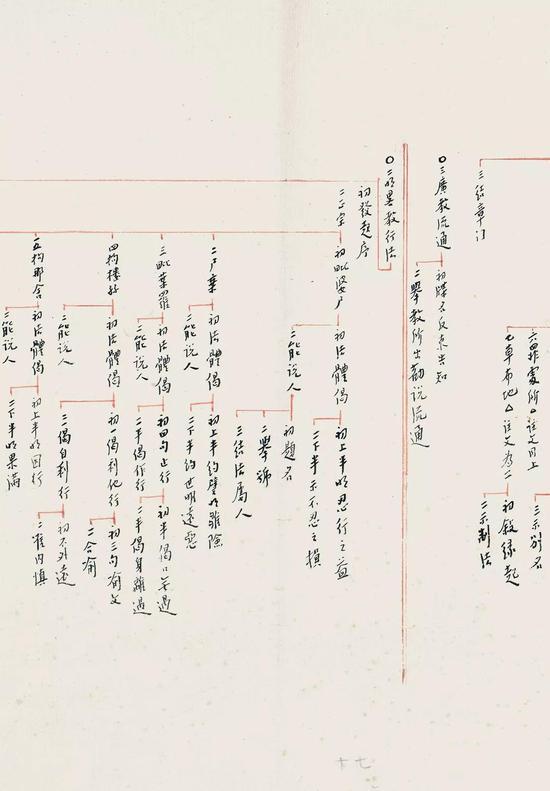 三結章門
六罪處所△註文同上
七草布地△註文為二
初敘緣起
二示制法
三示別名
○三廣教流通
初牒名反京告知
二舉教所出勸說流通
○二明略教行法
初發起序
二正宗
初毗婆尸
初法體偈
初上半明忍行之益
二下半示不忍之損
二能說人
初題名
二舉號
三結法屬人
二尸棄
初法體偈
初上半約譬明離除
二下半約世明遠惡
二能說人
三毗葉羅
初法體偈
初四句止行
初半偈口等過
二半偈身離過
二半偈作行
二能說人
四拘樓孫
初法體偈
初一偈利他行
初三句喻文
二合喻
二二偈自利行
初不外遠
二准內慎
二能說人
五拘那含
初法體偈
初上半明因行
二下半明果滿
二能說人
十七